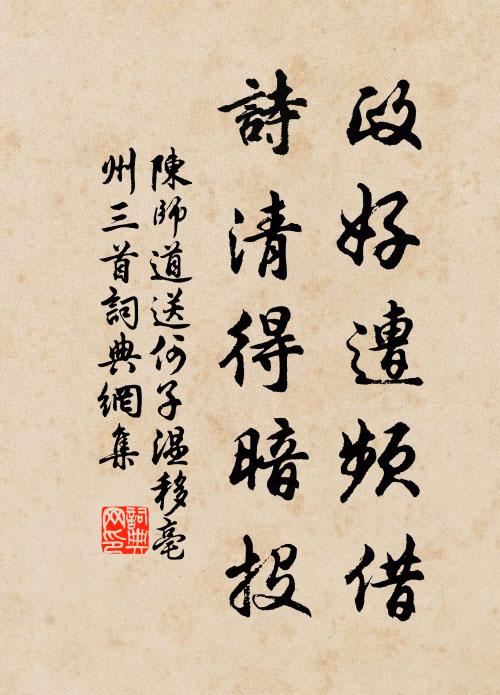 政好遭頻借
詩清得暗投
陳師道送何子温移亳
州三首詞典網集
詞典网印